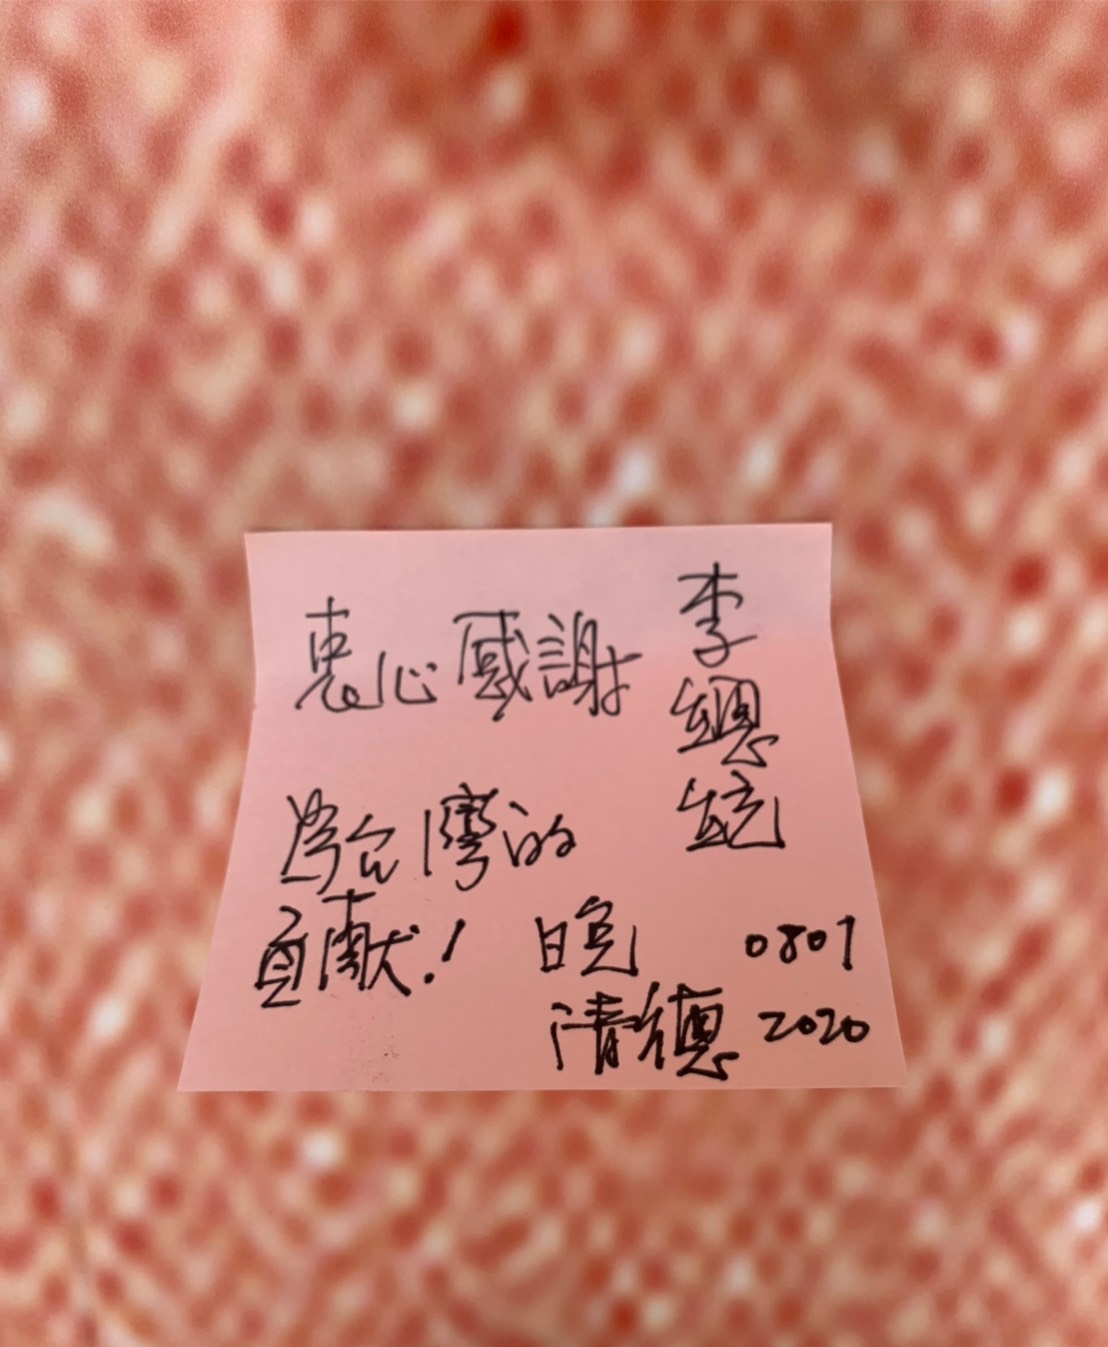 李總統
衷心感謝
為台灣的
貢獻!
晚
清德
0801
2020